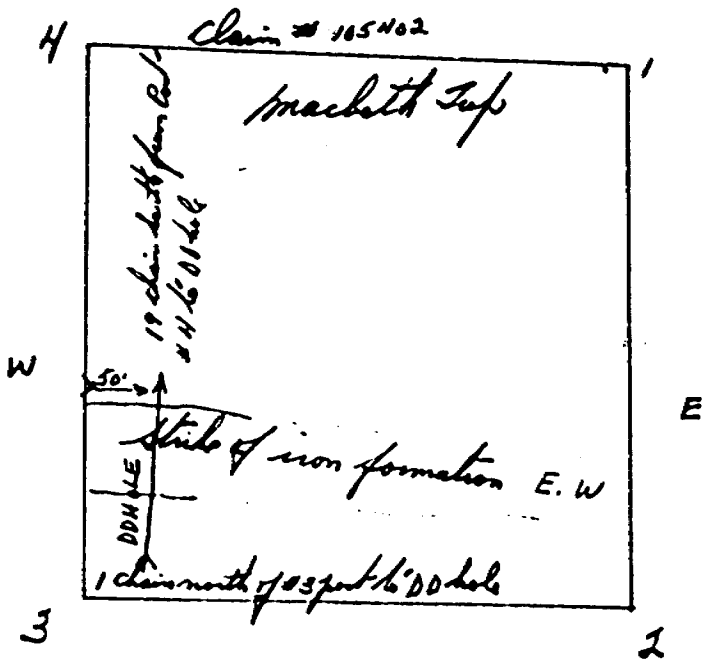 4
Claim # 105402
1
Macbeth Twp
19 chain south from Post
# 4 to DD hole
W
50'
E
Strike of iron formation E. W
DDHOLE
1 chain north of #3 post to DD hole
3
2